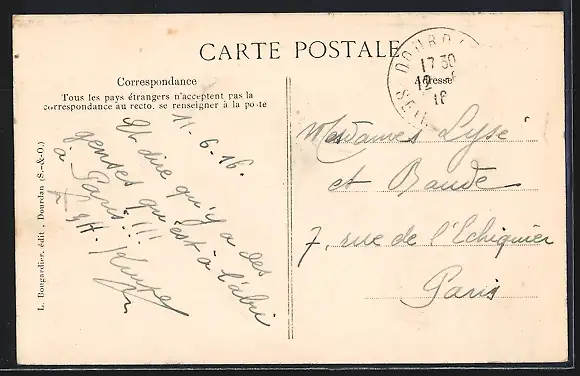 CARTE POSTALE
Correspondance
Tous les pays étrangers n'acceptent pas la
correspondance au recto. se renseigner à la poste
Adresse
DOURD
17 30
12
16
SEI
11-6-16.
Et dire qu'y a des
genses qu'est à l'abri
à Paris!!!
Mesdames Lysé
et Baude
7, rue de l'Echiquier
Paris
L. Bougardier, édit., Dourdan (S.-&-O.)